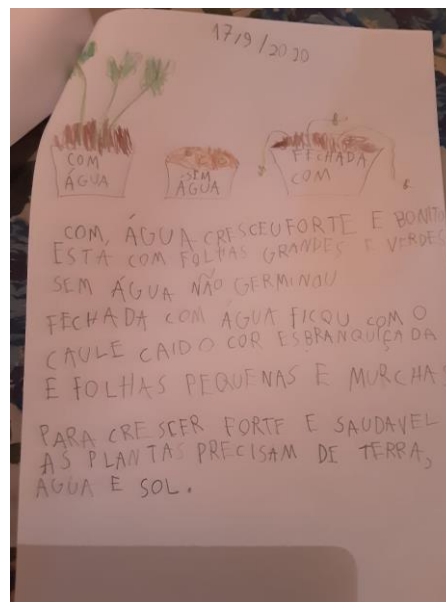 17/9/2020
COM
ÁGUA
SEM
ÁGUA
FECHADA
COM
COM, ÁGUA CRESCEU FORTE E BONITO
ESTA COM FOLHAS GRANDES E VERDES
SEM ÁGUA NÃO GERMINOU
FECHADA COM ÁGUA FICOU COM O
CAULE CAIDO COR ESBRANQUIÇADA
E FOLHAS PEQUENAS E MURCHAS
PARA CRESCER FORTE E SAUDAVEL
AS PLANTAS PRECISAM DE TERRA,
AGUA E SOL.